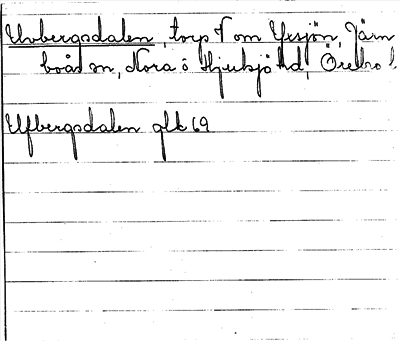 Uvbergsdalen, torp V om Yxsjön, Järn
boås sn, Nora o Hjulsjö hd, Örebro l.
Ufbergsdalen glk 69